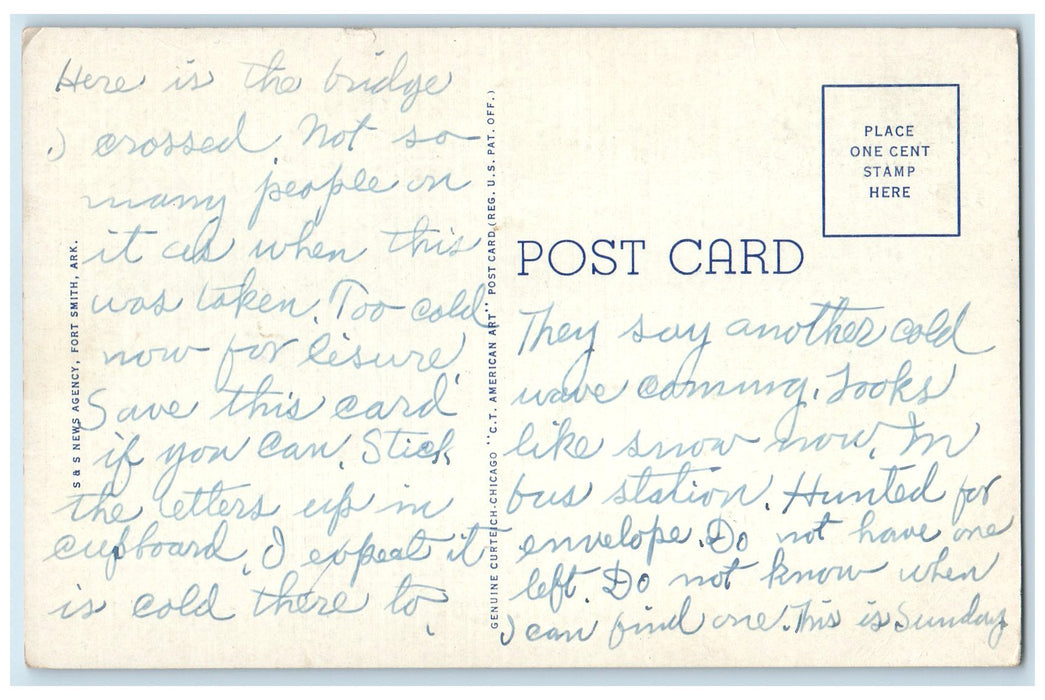 Here is the bridge
I crossed. Not so
many people on
it as when this
was taken. Too cold
now for lisure.
Save this card
if you can. Stick
the letters up in
cupboard. I expect it
is cold there to.
S & S NEWS AGENCY, FORT SMITH, ARK.
GENUINE CURTEICH-CHICAGO "C.T. AMERICAN ART" POST CARD (REG. U.S. PAT. OFF.)
PLACE
ONE CENT
STAMP
HERE
POST CARD
They say another cold
wave coming. Looks
like snow now. In
bus station. Hunted for
envelope. Do not have one
left. Do not know when
I can find one. This is Sunday